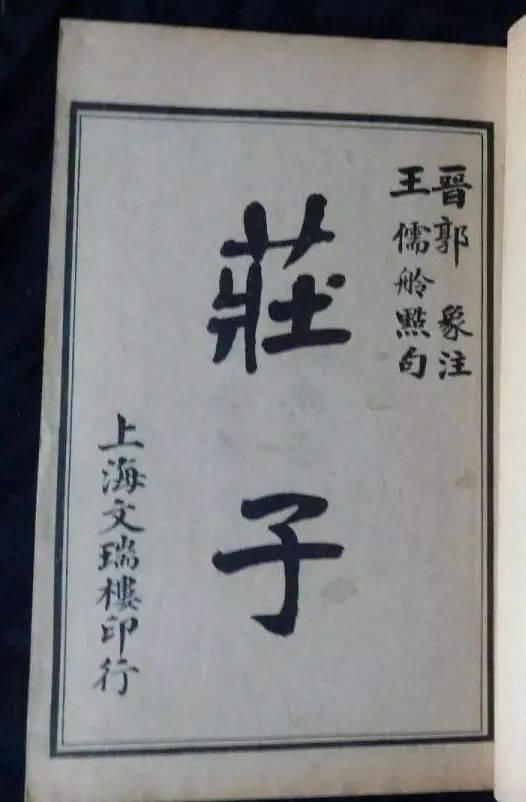 晉郭象注
王儒舲點句
莊子
上海文瑞樓印行